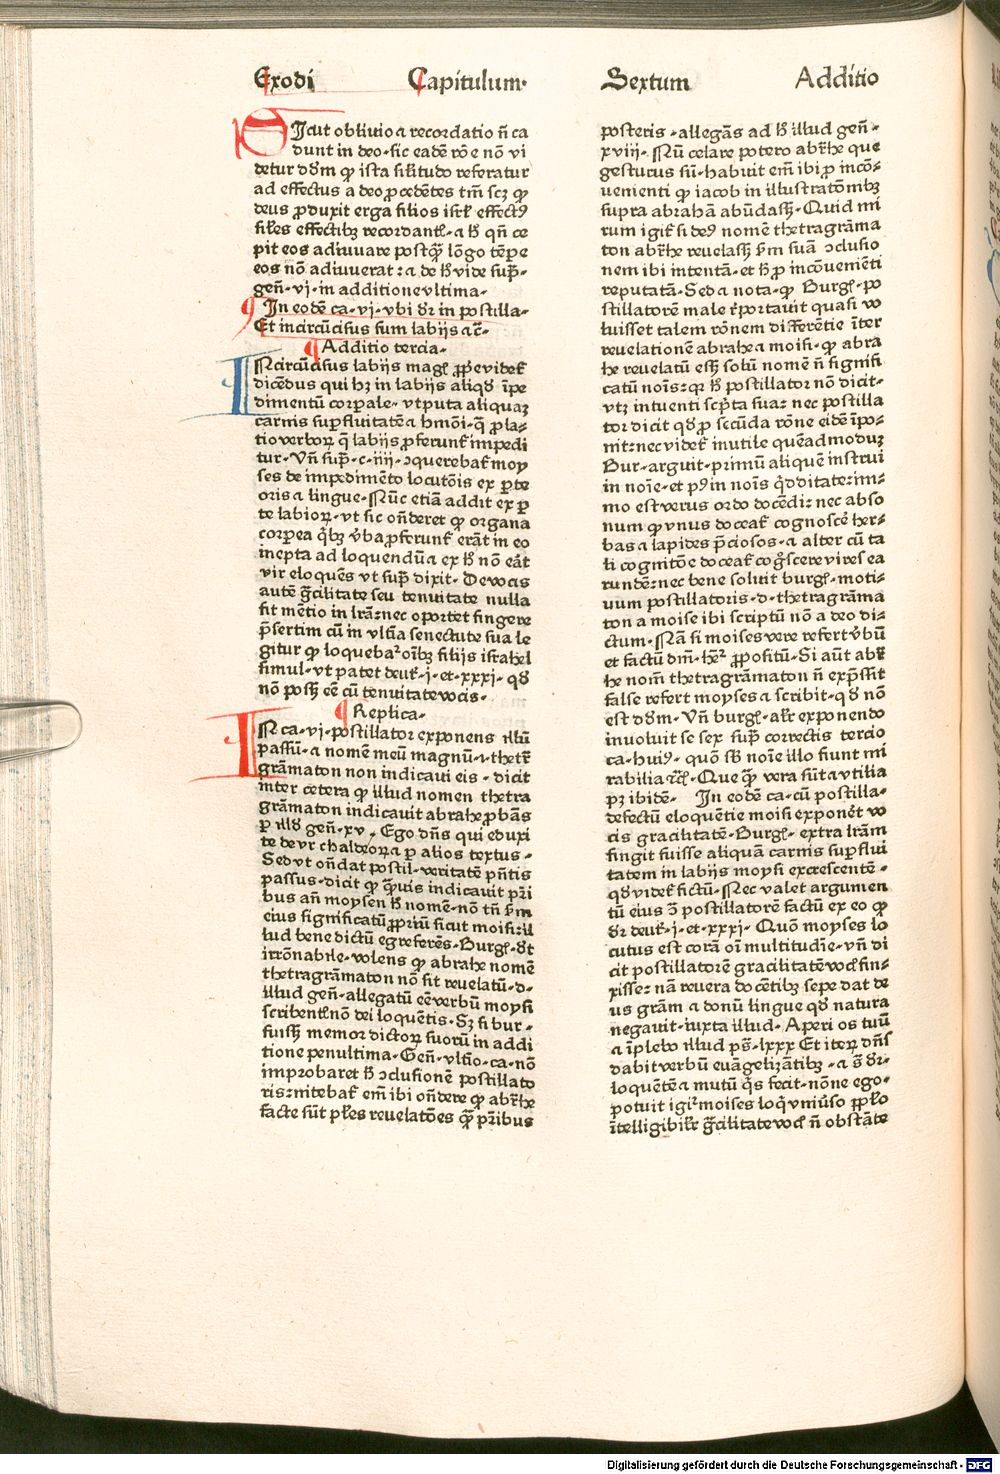 Exodi Capitulum· Sextum Additio
SIcut obliuio ⁊ recordatio n̄ ca
dunt in deo·sic eadē rōe nō vi
detur dd̄m ꝙ ista sil̄itudo referatur
ad effectus a deo ꝓcedētes tm̄ scꝫ ꝙ
deus ꝓduxit erga filios isrl̄ effectꝰ
sil̄es effectibꝫ recordant̄·a qn̄ ce
pit eos adiuuare postqꝫ lōgo tēpe
eos nō adiuuerat: ⁊ de h̄ vide sup̄·
gen̄·vj·in additione vltima·
In eodē ca·vj·vbi dr̄ in postilla·
Et incircūcisus sum labijs ⁊c̄·
Additio tercia·
INcircūcisus labijs magꝭ ꝓpe videt̄
dicēdus qui hꝫ in labijs aliqd̄ īpe
dimentū corꝑale·vtputa aliquaꝫ
carnis suꝑfluitatē ⁊ hmōi·q̄ ꝓla·
tio verboꝝ q̄ labijs ꝓferunt̄ impedi
tur·Vn̄ sup̄·c·iiij·ↄquerebat̄ moy
ses de impedimēto locutōis ex ꝑte
oris ⁊ lingue·Nūc etiā addit ex ꝑ
te labioꝝ·vt sic on̄deret ꝙ organa
corꝑea qͥbꝫ v̄ba ꝓferunt̄ erāt in eo
inepta ad loquendū ⁊ ex h̄ nō eāt
vir eloquēs vt sup̄ dixit· De vocis
autē ḡcilitate seu tenuitate nulla
fit mētio in lr̄a:nec oportet fingere
p̄sertim cū in vltīa senectute sua le
gitur ꝙ loquebaᷣ oībꝫ filijs israhel
simul·vt patet deut̄·j·et·xxxj·qd̄
nō possꝫ eē cū tenuitate vocis·
Replica·
IN ca·vj·postillator exponens illū
passū·⁊ nomē meū magnū·⁊·thetͬ
grāmaton non indicaui eis·dicit
inter cetera ꝙ illud nomen thetra
grāmaton indicauit abrahe ꝓbās
ꝑ illd̄ gen̄·xv·Ego dn̄s qui eduxi
te de vr chaldeoꝝ ⁊ ꝑ alios textus·
Sed vt on̄dat postil·veritatē pn̄tis
passus·dicit ꝙ qꝫuis indicauit pr̄i
bus an̄ moysen h̄ nomē·nō tn̄ ẜm
eius significatū ꝓpriū sicut moisi:il
lud bene dictū egre ferēs·Burgꝭ·dt̄
irrōnabile·volens ꝙ abrahe nomē
thetragrāmaton nō sit reuelatū·⁊·
illud gen̄·allegatū eē verbū moysi
scribentꝭ nō dei loquētis·Sꝫ si bur·
fuissꝫ memor dictoꝝ suorū in addi
tione penultima·Gen̄·vltīo·ca·nō
improbaret h̄ ↄclusionē postillato
ris:nitebat̄ em̄ ibi on̄dere ꝙ abr̄he
facte sūt pl̄es reuelatōes qꝫ pr̄ibus
posteris·allegās ad h̄ illud gen̄·
xviij·Nū celare potero abr̄he que
gesturus sū·habuit em̄ ibi ꝓ incō·
uenienti ꝙ iacob in illustratōnibꝫ
supra abrahā abūdassꝫ·Quid mi
rum igit̄ si deꝰ nomē thetragrāma
ton abr̄he reuelassꝫ ẜm suā ↄclusio
nem ibi intentā·et h̄ ꝓ incōueniēti
reputatā·Sed ⁊ nota·ꝙ Burgꝭ·po
stillatorē male r̄portauit quasi vo
luisset talem rōnem differētie īter
reuelationē abrahe ⁊ moisi·ꝙ abra
he reuelatū essꝫ solū nomē n̄ signifi
catū noīs:qꝛ h̄ postillator nō dicit·
vtꝫ intuenti scp̄ta sua: nec postilla
tor dicit qd̄ ꝓ secūda rōne eidē īpo·
nit:nec videt̄ inutile quēadmoduꝫ
Bur·arguit·primū aliquē instrui
in noīe·et pꝰ in noīs qͥdditate:im·
mo est verus ordo docēdi: nec abso
num ꝙ vnus doceat̄ cognoscē her·
bas ⁊ lapides p̄ciosos·⁊ alter cū ta
li cognitōe doceat̄ cog̊scere vires ea
rundē:nec bene soluit burgꝭ·moti·
uum postillatoris·⁊·thetragrāma
ton a moise ibi scriptū nō a deo di·
ctum·Nā si moises vere refert v̄bū
et factū dn̄i·heᷣ ꝓpositū·Si aūt abr̄
he nom̄ thetragrāmaton n̄ exp̄ssit
false refert moyses ⁊ scribit·qd̄ nō
est dd̄m·Vn̄ burgꝭ·alr̄ exponendo
inuoluit se sex sup̄ correctis tercio
ca·huiꝰ·quō sb̄ noīe illo fiunt mi
rabilia ⁊c̄·Que qꝫ vera sūt ⁊ vtilia
pꝫ ibidē· In eodē ca·cū postilla·
defectū eloquētie moisi exponēt vo
cis gracilitatē·Burgꝭ·extra lr̄am
fingit fuisse aliquā carnis suꝑflui
tatem in labijs moysi excrescentē·
qd̄ videt̄ fictū·Nec valet argumen
tū eius ꝯ̄ postillatorē factū ex eo ꝙ
dr̄ deut̄·j·et·xxxj· Quō moyses lo
cutus est corā oī multitudīe·vn̄ di
cit postillatorē gracilitatē vocꝭ fin·
xisse: nā reuera docētibꝫ sepe dat de
us grām ⁊ donū lingue qd̄ natura
negauit·iuxta illud·Aperi os tuū
⁊ īplebo illud ps̄·lxxx Et iteꝝ dn̄s
dabit verbū euāgelizātibꝫ·⁊ s̄ dr̄·
loquētē ⁊ mutū qͥs fecit·nōne ego·
potuit igiᷣ moises loqͥ vniūso ꝓpl̄o
ītelligibilr̄ ḡcilitate vocꝭ n̄ obstāte
Digitalisierung gefördert durch die Deutsche Forschungsgemeinschaft - DFG